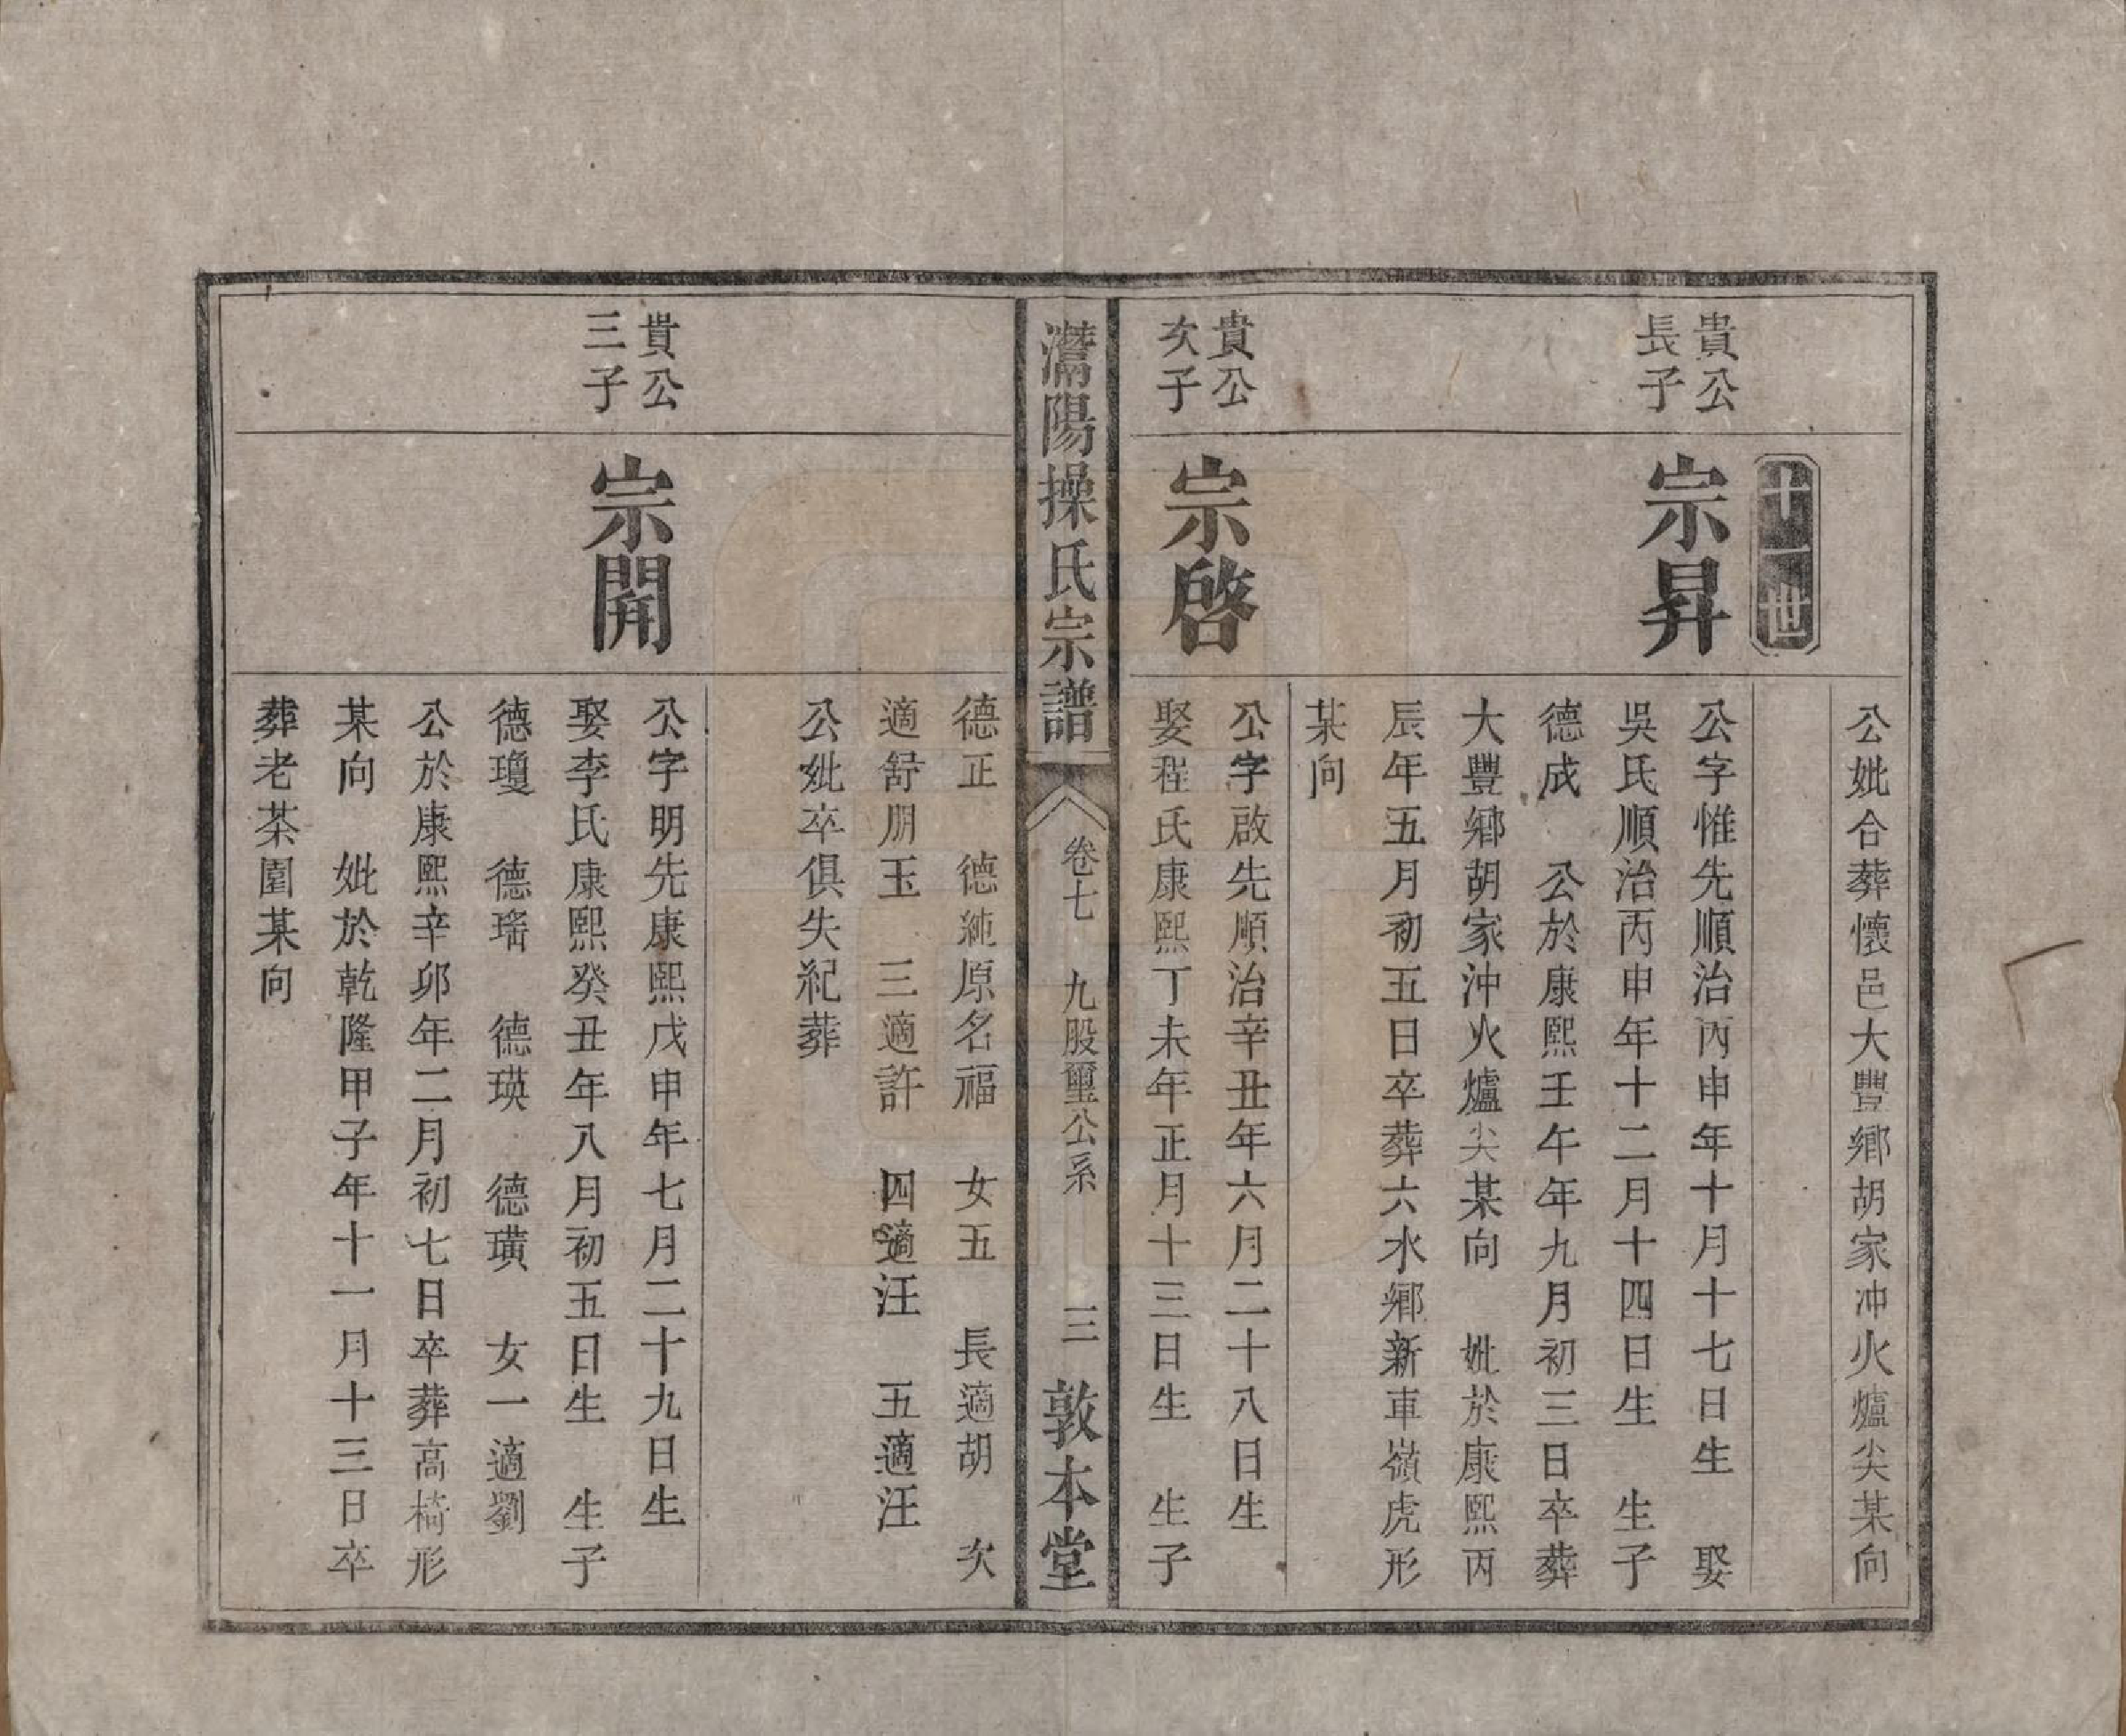 公妣合葬懷邑大豐鄉胡家冲火爐尖某向
十一世
貴公
長子
宗昇
公字惟先順治丙申年十月十七日生　娶
吳氏順治丙申年十二月十四日生　生子
德成　公於康熙壬午年九月初三日卒葬
大豐鄉胡家沖火爐尖某向　妣於康熙丙
辰年五月初五日卒葬六水鄉新車嶺虎形
某向
貴公
次子
宗啓
公字啟先順治辛丑年六月二十八日生
娶程氏康熙丁未年正月十三日生　生子
灊陽操氏宗譜
卷七　九股璽公系　三
敦本堂
德正　德純原名福　女五　長適胡　次
適舒朋玉　三適許　四適汪　五適汪
公妣卒俱失紀葬
貴公
三子
宗開
公字明先康熙戊申年七月二十九日生
娶李氏康熙癸丑年八月初五日生　生子
德瓊　德瑤　德瑛　德璜　女一適劉
公於康熙辛卯年二月初七日卒葬高椅形
某向　妣於乾隆甲子年十一月十三日卒
葬老茶園某向